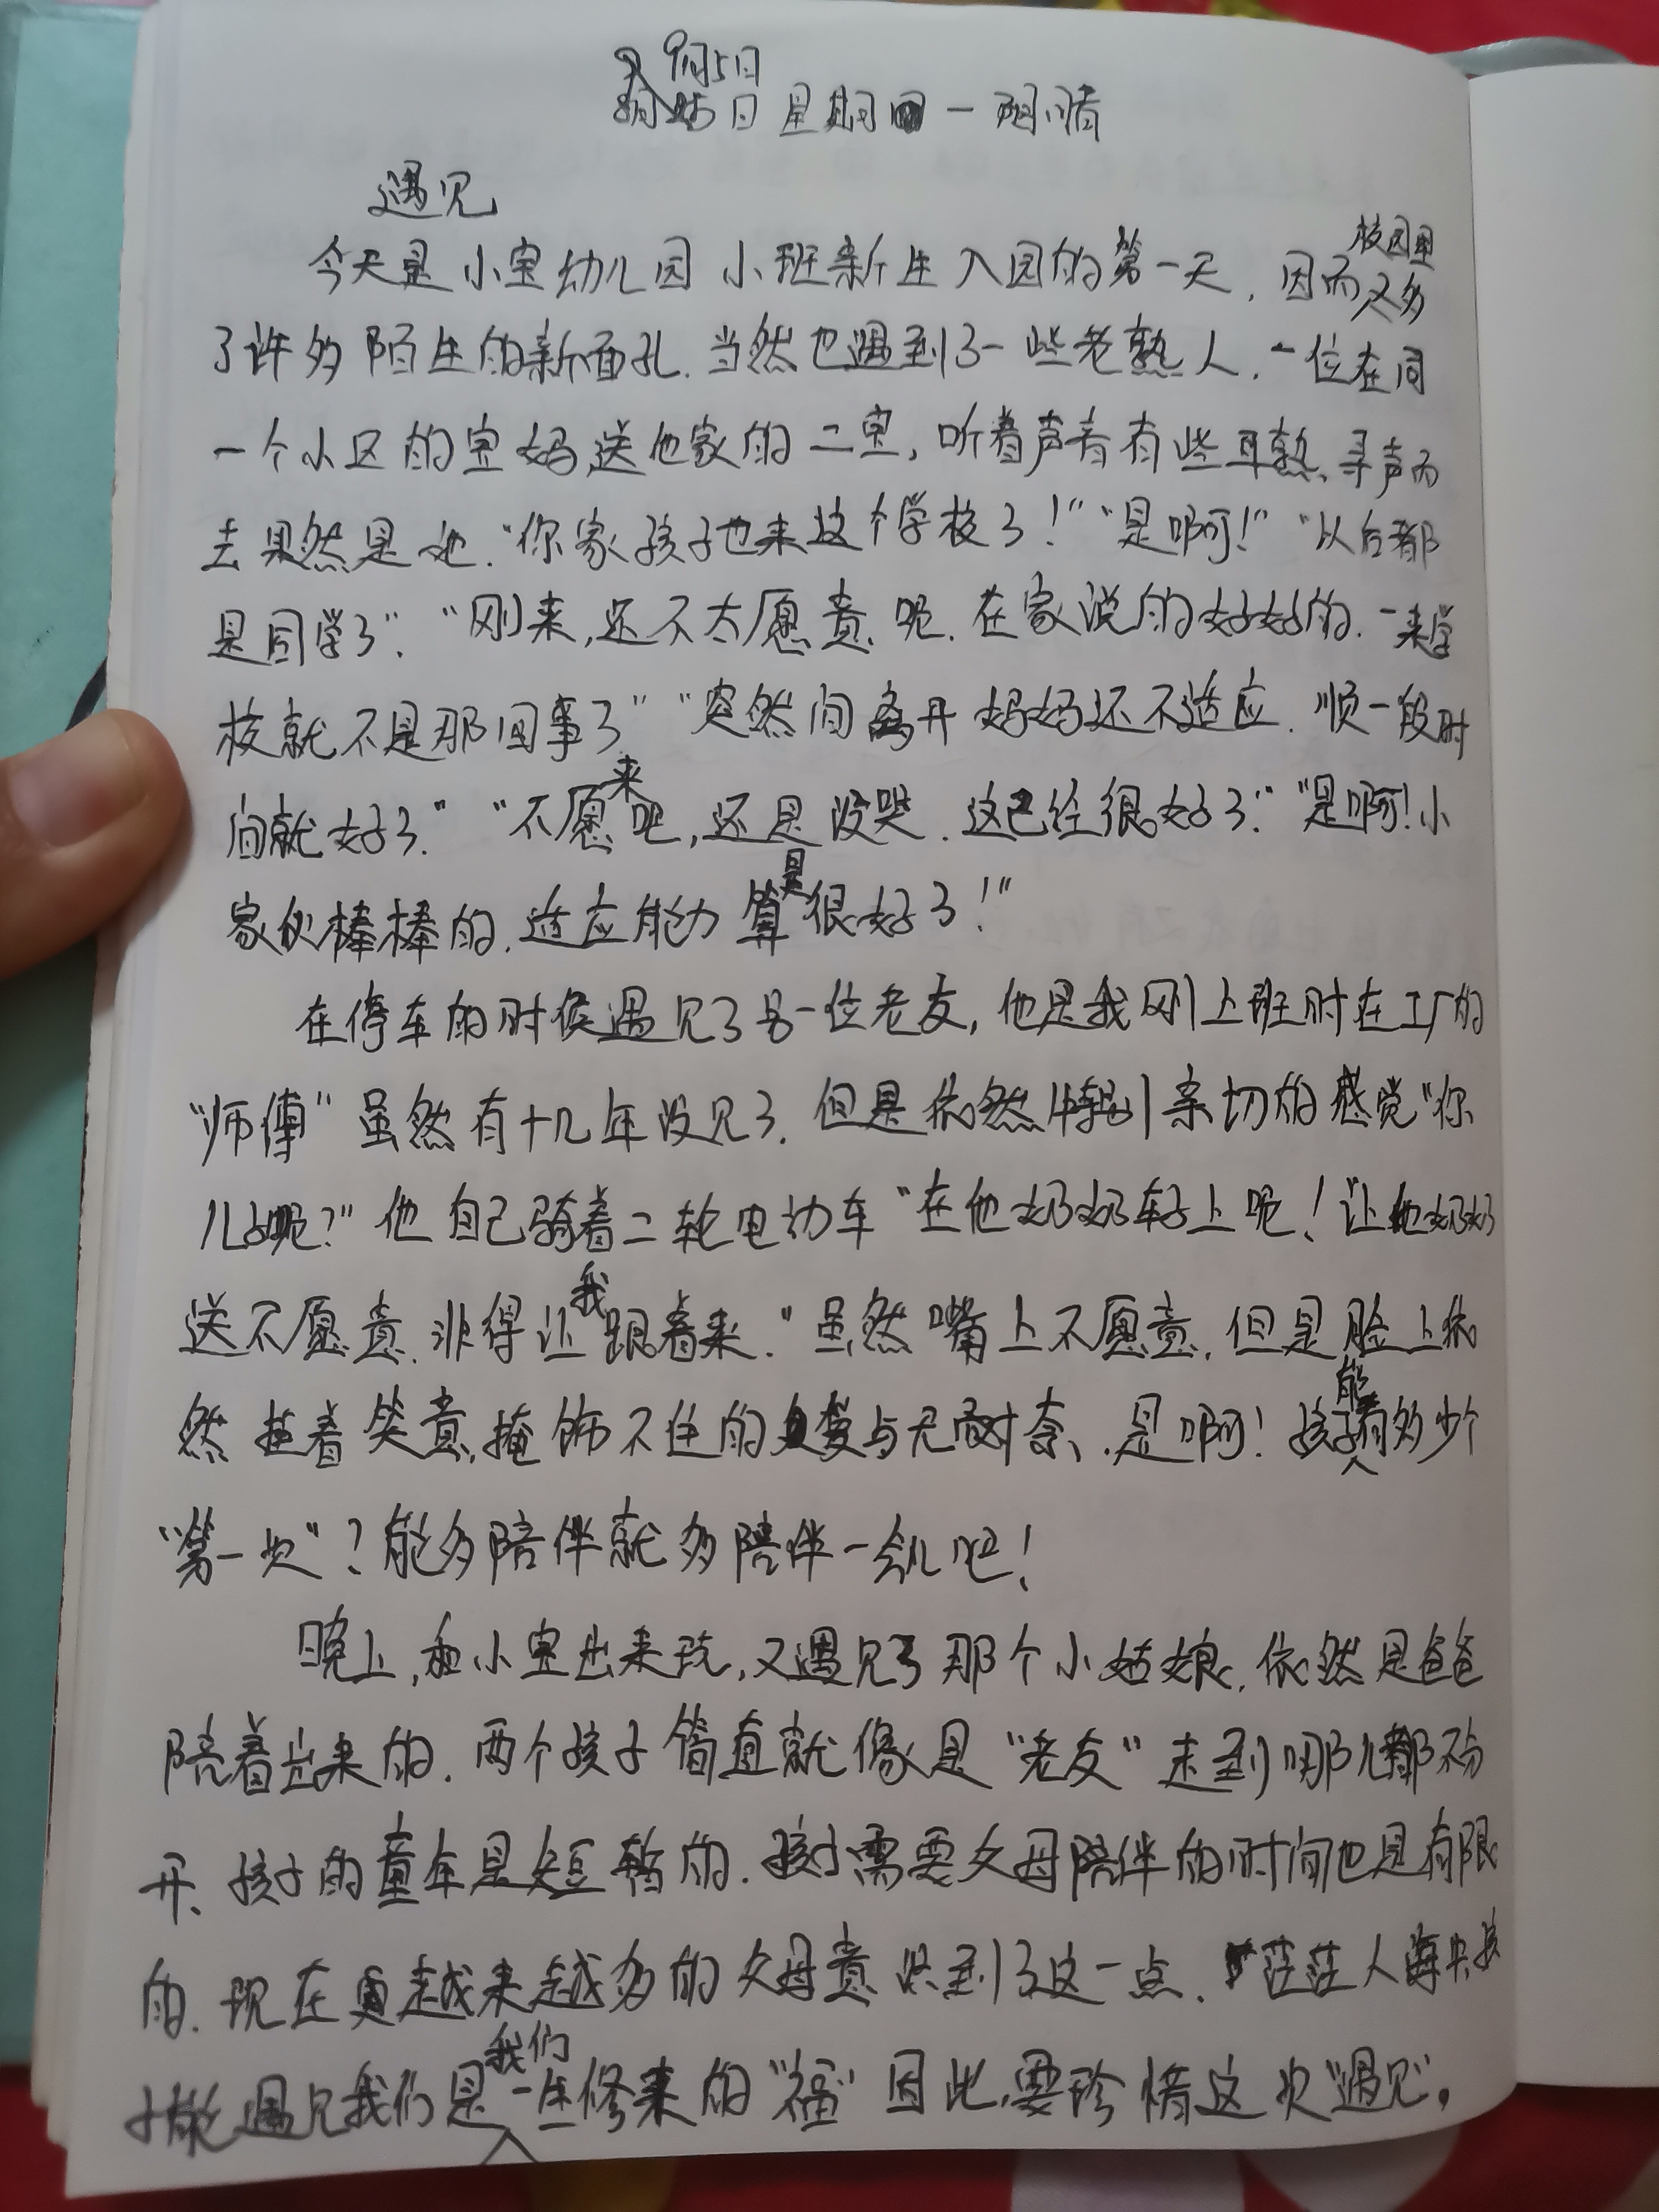 9月5日
日 星期一 阴晴
遇见
今天是小宝幼儿园小班新生入园的第一天,因而校园里又多
了许多陌生的新面孔.当然也遇到了一些老熟人.一位在同
一个小区的宝妈,送他家的二宝,听着声音有些耳熟、寻声而
去果然是她.“你家孩子也来这个学校了!”“是啊!”“以后都
是同学了”.“刚来,还不太愿意呢.在家说的好好的.一来学
校就不是那回事了”“突然间离开妈妈还不适应.顺一段时
间就好了.”“不愿来吧,还是没哭.这已经很好了.”“是啊!小
家伙棒棒的.适应能力算是很好了!”
在停车的时候遇见了另一位老友,他是我刚上班时在工厂的
“师傅”虽然有十几年没见了.但是依然倍亲切的感觉“你
儿子呢?”他自己骑着二轮电动车“在他奶奶车子上呢!让他奶奶
送不愿意.非得让我跟着来.”虽然嘴上不愿意.但是脸上依
然挂着笑意,掩饰不住的爱与无奈、.是啊!孩子能有多少个
“第一次”?能多陪伴就多陪伴一会儿吧!
晚上,和小宝出来玩,又遇见了那个小姑娘,依然是爸爸
陪着出来的.两个孩子简直就像是“老友”走到哪儿都不分
开、孩子的童年是短暂的.孩子需要父母陪伴的时间也是有限
的.现在越来越多的父母意识到了这一点.茫茫人海中,孩
子能遇见我们是我们一生修来的“福”因此,要珍惜这次“遇见”。